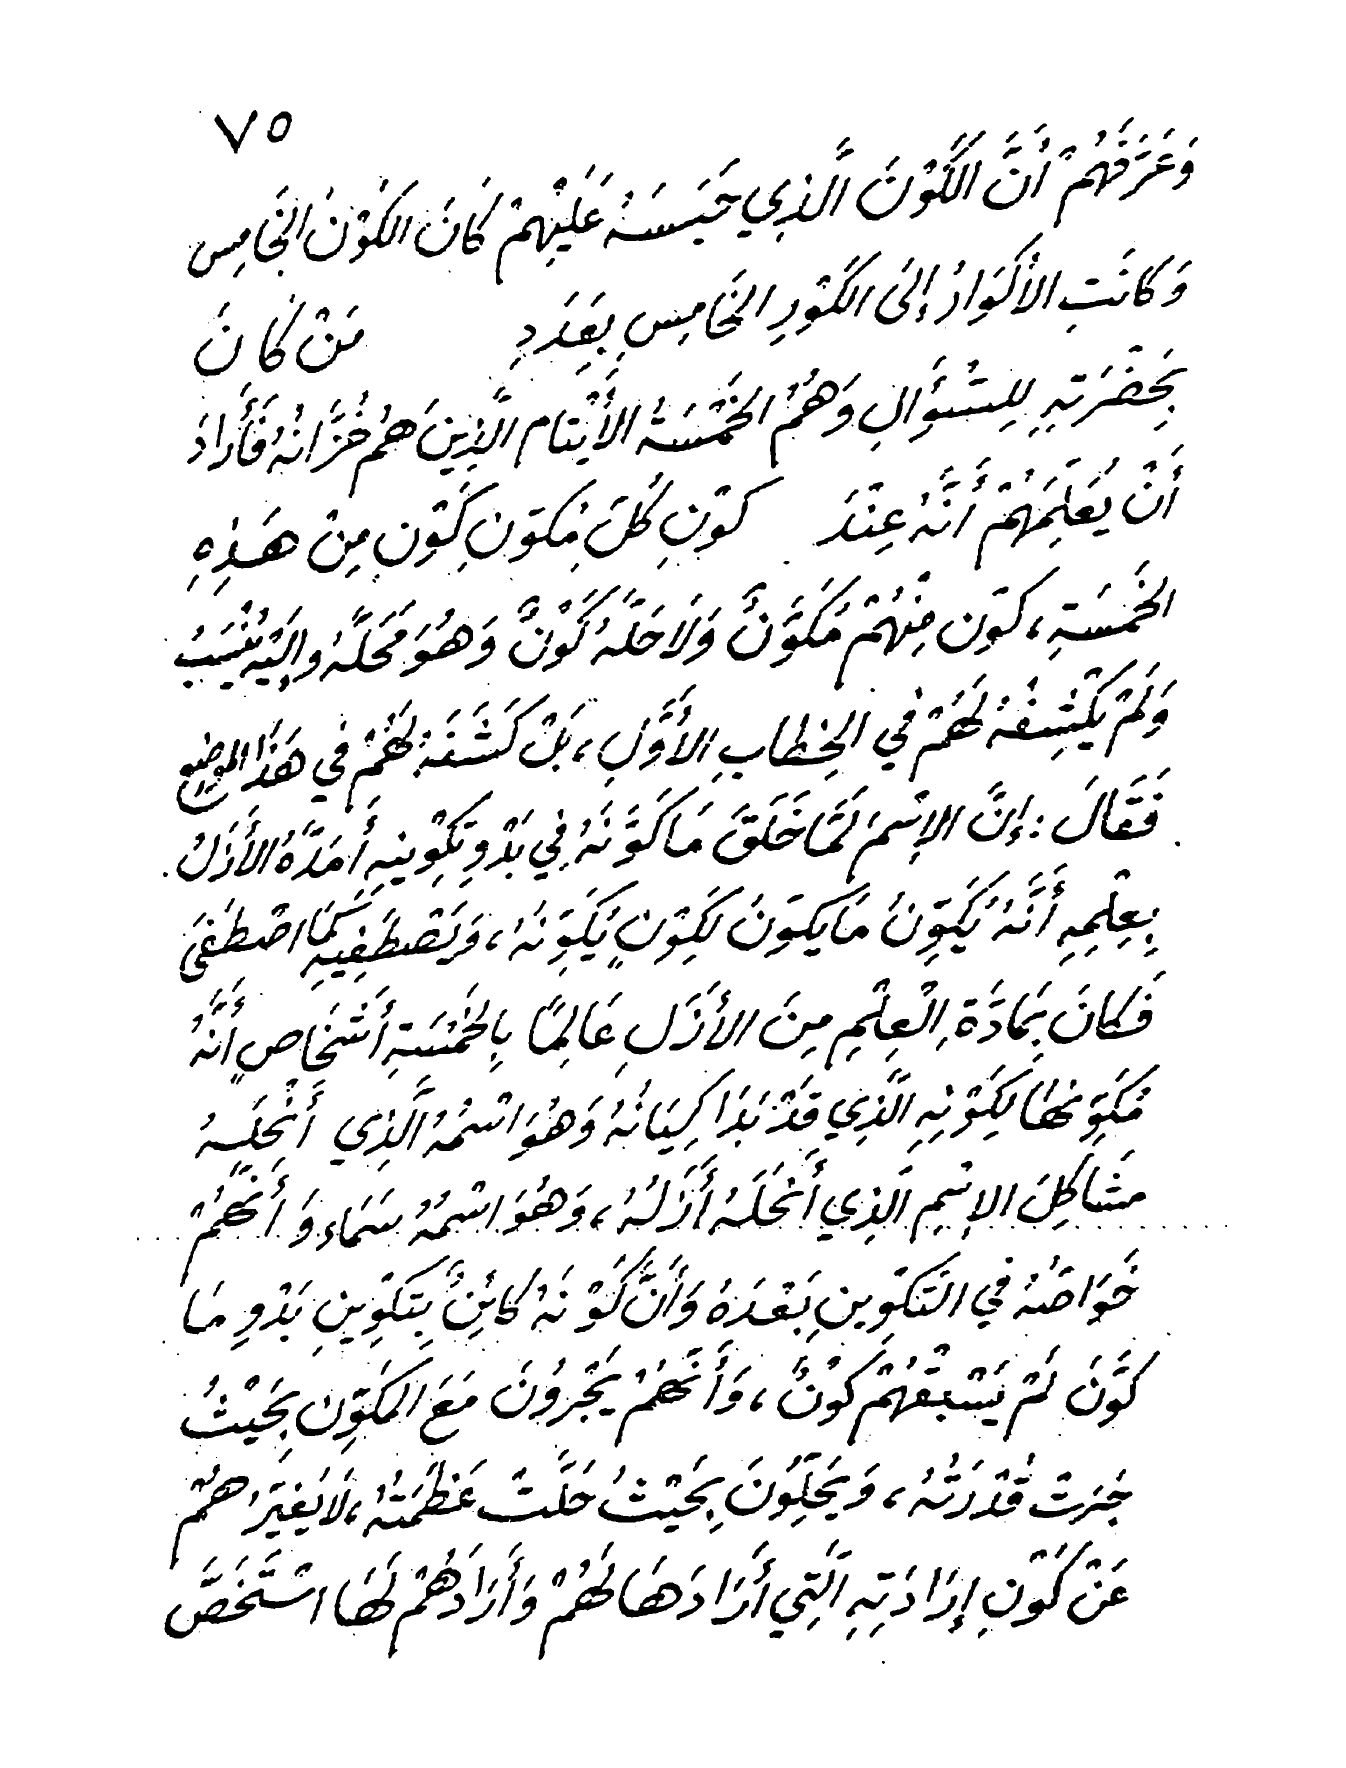 ٧٥
وَعَرَّفَهُمْ أَنَّ الكَوْنَ الَّذِي حَبَسَهُ عَلَيْهِمْ كَانَ الكَوْنَ الخَامِس
وَكَانَتِ الأَكْوَارُ إِلَى الكَوْرِ الخَامِسِ بِعَدَدِ مَنْ كَانَ
بِحَضْرَتِهِ لِلسُّؤَالِ وَهُمُ الخَمْسَةُ الأَيْتَام الَّذِينَ هُمْ خُزَّانُهُ فَأَرَادَ
أَنْ يُعَلِّمَهُمْ أَنَّهُ عِنْدَ كَوْنِ كُلِّ مُكَوَّنٍ كَوَّنَ مِنْ هَذِهِ
الخَمْسَةِ، كَوَّنَ مِنْهُمْ مُكَوَّنٌ وَلَا حَلَّهُ كَوْنٌ وَهُوَ مَحَلَّهُ وإِلَيْهِ يُنْسَبُ
وَلَمْ يَكْشِفْهُ لَهُمْ فِي الخِطَابِ الأَوَّلِ، بَلْ كَشَفَهُ لَهُمْ فِي هَذَا الموضِعِ
فَقَالَ: إِنَّ الإِسْمَ لَمَّا خَلَقَ مَا كَوَّنَهُ فِي بَدْوِ تَكْوِينِهِ أَمَدَّهُ الأَزَلُ
بِعِلْمِهِ أَنَّهُ يُكَوِّنُ مَا يَكُونُ لِكَوْنٍ يُكَوِّنَهُ، وَيَصْطَفِيهِ كَمَا اصْطَفَى
فَكَانَ بِمَادَّةِ الْعِلْمِ مِنَ الأَزَلِ عَالِمًا بِالخَمْسَةِ أَشْخَاصٍ أَنَّهُ
مُكَوِّنُهَا بِكَوْنِهِ الَّذِي قَدْ بَدَا كِيَانُهُ وَهُوَ اسْمُهُ الَّذِي أَنْحَلَهُ
مَشَاكِلَ الإِسْمِ الَّذِي أَنْحَلَهُ أَزَلُهُ، وَهُوَ اسْمُهُ سَمَاء وَأَنَّهُمْ
خَوَاصُّهُ فِي التَّكْوِينِ بَعْدَهُ وَأَنَّ كَوْنَهُ كَائِنٌ بِتَكْوِينِ بَدْوِ مَا
كَوَّنَ لَمْ يَسْبِقْهُمْ كَوْنٌ، وَأَنَّهُمْ يَجْرُونَ مَعَ المُكَوِّنِ بِحَيْثُ
جَرَتْ قُدْرَتُهُ، وَيَحِلُّونَ بِحَيْثُ حَلَّتْ عَظَمَتُهُ، لَا يُغَيِّرُهُمْ
عَنْ كَوْنِ إِرَادَتِهِ الَّتِي أَرَادَهَا لَهُمْ وَأَرَادَهُمْ لَهَا اسْتَخَصَّ